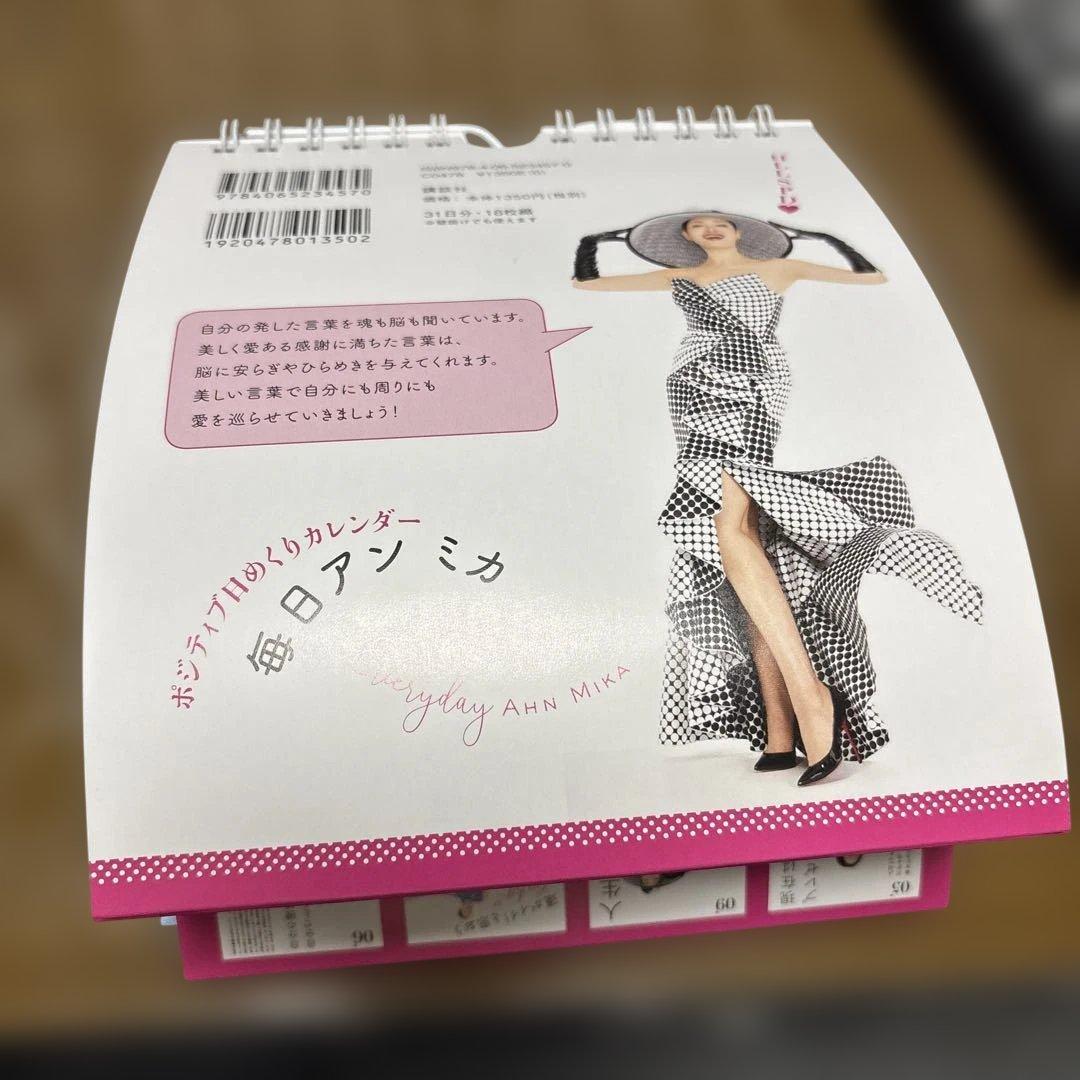 9784065234570
1920478013502
講談社
価格：本体1350円（税別）
31日分・16枚綴
※壁掛けでも使えます
自分の発した言葉を魂も脳も聞いています。
美しく愛ある感謝に満ちた言葉は、
脳に安らぎやひらめきを与えてくれます。
美しい言葉で自分にも周りにも
愛を巡らせていきましょう！
ポジティブ日めくりカレンダー
毎日アン ミカ
everyday AHN MIKA
06
09
05
人生
現在は
セレブ